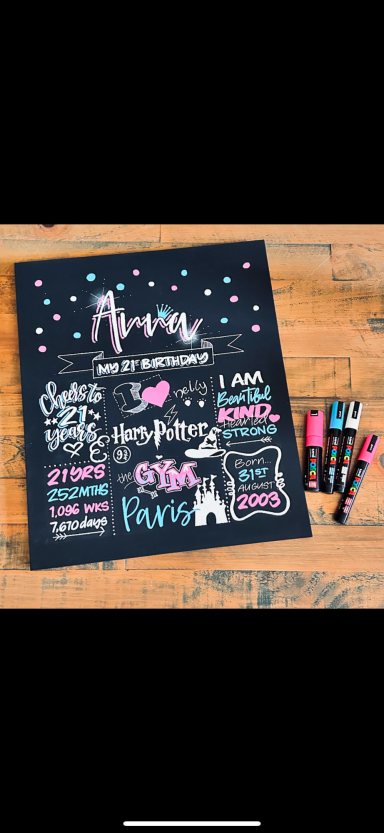 Anna
MY 21ST BIRTHDAY
Cheers to
21
years
21 YRS
252 MTHS
1,096 WKS
7,670 days
I
nelly
Harry Potter
9¾
the GYM
Paris
I AM
Beautiful
KIND
Hearted
STRONG
Born...
31ST
AUGUST
2003
POSCA
POSCA
POSCA
POSCA